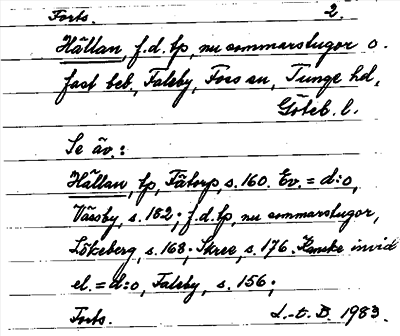 Forts. 2.
Hällan, f.d. tp, nu sommarstugor o.
fast beb., Faleby, Foss sn, Tunge hd,
Göteb. l.
Se äv.:
Hällan, tp, Fätorp, s. 160. Ev. = d:o,
Vässby, s. 182; f.d. tp, nu sommarstugor,
Lökeberg, s. 168; Skree, s. 176. Kanske invid
el. = d:o, Faleby, s. 156;
Forts. L.-t. B. 1983.